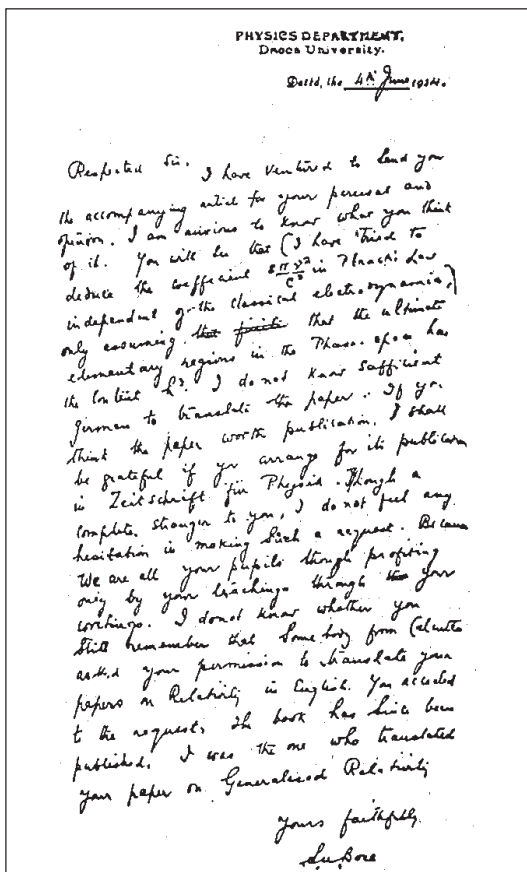 PHYSICS DEPARTMENT,
Dacca University.
Dated, the 4th June 1924.
Respected Sir, I have ventured to send you
the accompanying article for your perusal and
opinion. I am anxious to know what you think
of it. You will see that (I have tried to
deduce the coefficient 8πν²/c³ in Planck's Law
independent of the classical electrodynamics,)
only assuming that the ultimate
elementary regions in the Phase-space has
the content h³. I do not know sufficient
german to translate the paper. If you
think the paper worth publication, I shall
be grateful if you arrange for its publication
in Zeitschrift für Physik. Though a
complete stranger to you, I do not feel any
hesitation in making such a request. Because
We are all your pupils though profiting
only by your teachings through your
writings. I do not know whether you
still remember that somebody from Calcutta
asked your permission to translate your
papers on Relativity in English. You acceded
to the request. The book has since been
published. I was the one who translated
your paper on Generalised Relativity
Yours faithfully
S.N. Bose